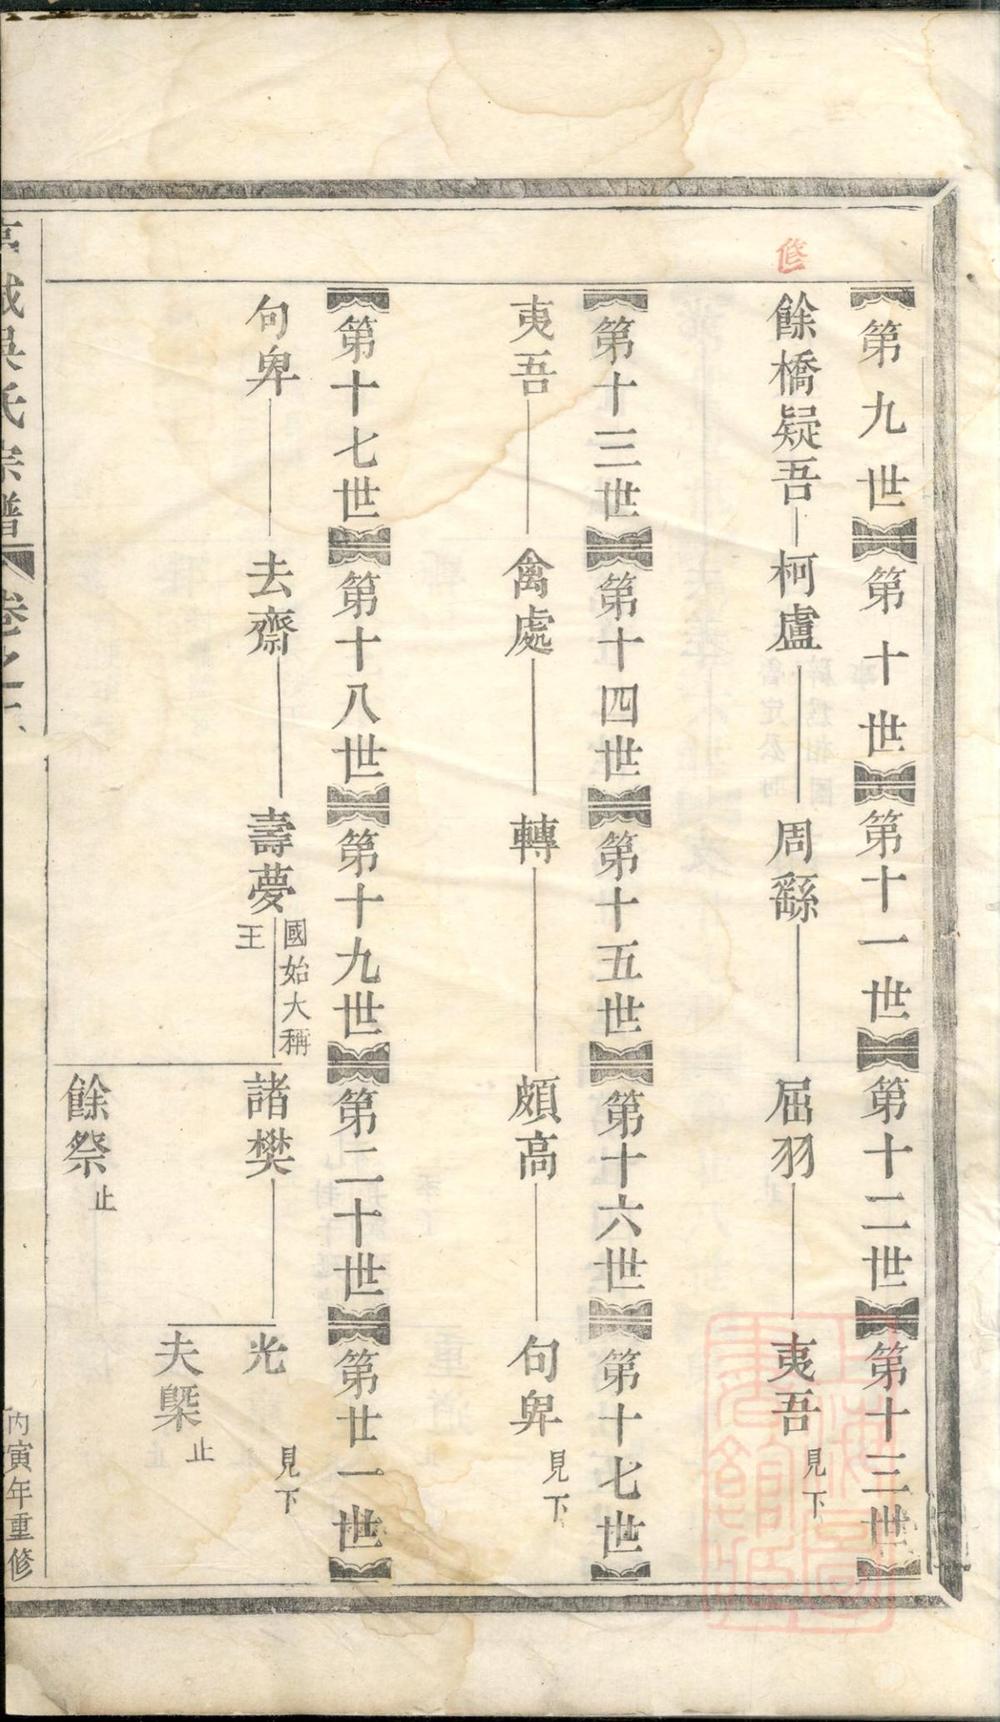 修
第九世 第十世 第十一世 第十二世 第十三世
餘橋疑吾 柯盧 周繇 屈羽 夷吾 見下
第十三世 第十四世 第十五世 第十六世 第十七世
夷吾 禽處 轉 頗高 句卑 見下
第十七世 第十八世 第十九世 第二十世 第廿一世
句卑 去齋 壽夢 國始大稱王 諸樊 光 見下
夫槩 止
餘祭 止
吳氏宗譜 卷之
丙寅年重修